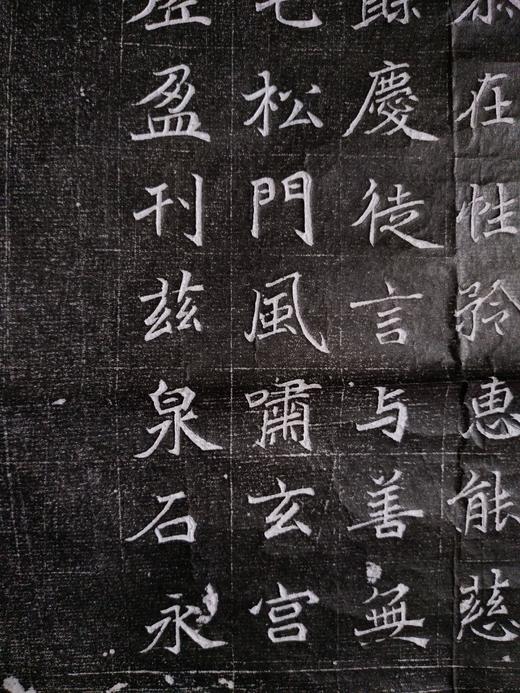 在性矜惠能慈
餘慶徒言与善無
松門風嘯玄宫
盈刊兹泉石永